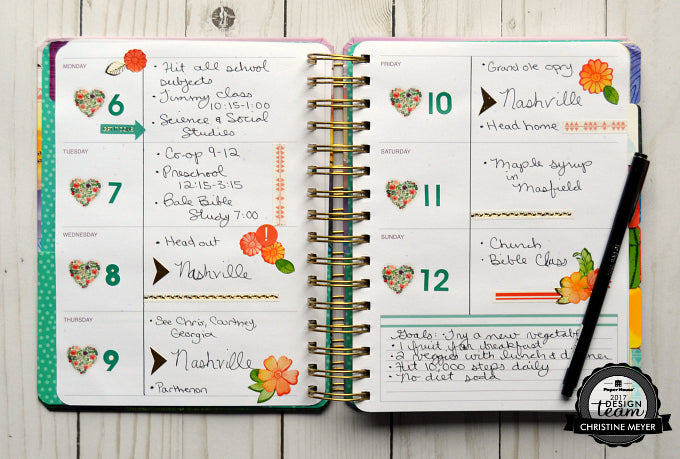 MONDAY
6
• Hit all school
subjects
• Jimmy Class
10:15-1:00
• Science & Social
Studies
TUESDAY
7
• Co-op 9-12
• Preschool
12:15-3:15
• Bale Bible
Study 7:00
WEDNESDAY
8
• Head out
!
Nashville
THURSDAY
9
• See Chris, Courtney,
Georgia
Nashville
• Parthenon
FRIDAY
10
• Grand ole opry
Nashville
• Head home
SATURDAY
11
• Maple syrup
in
Masfield
SUNDAY
12
• Church
• Bible Class
Goals: • Try a new vegetable
• 1 fruit for breakfast
• 2 veggies with lunch & dinner
• Hit 10,000 steps daily
• No diet soda
Paper House
2017
DESIGN
team
CHRISTINE MEYER